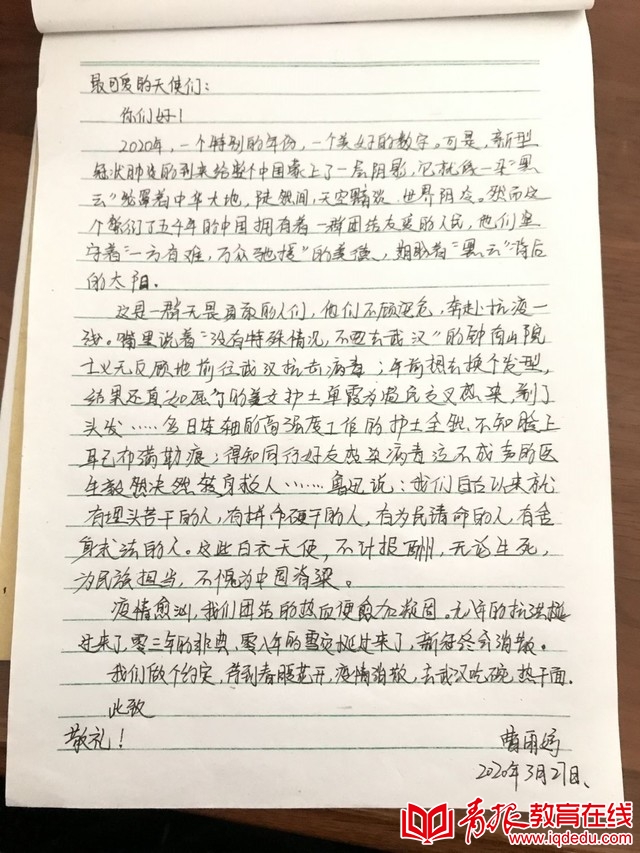 最可爱的天使们：
你们好！
2020年，一个特别的年份，一个美好的数字。可是，新型
冠状肺炎的到来给整个中国蒙上了一层阴影，它就像一朵“黑
云”笼罩着中华大地，陡然间，天空黯淡，世界阴冷。然而这
个繁衍了五千年的中国拥有着一群团结友爱的人民，他们坚
守着“一方有难，万众驰援”的美德，期盼着“黑云”背后
的太阳。
这是一群无畏勇敢的人们，他们不顾安危，奔赴抗疫一
线。嘴里说着“没有特殊情况，不要去武汉”的钟南山院
士义无反顾地前往武汉抗击病毒；年前想去换个发型，
结果还真如愿了的美女护士单霞为避免交叉感染，剃了
头发……多日连轴的高强度工作的护士全然不知脸上
早已布满勒痕；得知同行好友感染病毒泣不成声的医
生毅然决然救人……鲁迅说：我们自古以来就
有埋头苦干的人，有拼命硬干的人，有为民请命的人，有舍
身求法的人。这些白衣天使，不计报酬，无论生死，
为民族担当，不愧为中国脊梁。
疫情愈汹，我们团结的热血便愈加凝固。九八年的抗洪挺
过来了，零三年的非典、零八年的雪灾挺过来了，新冠终会消散。
我们做个约定，等到春暖花开，疫情消散，去武汉吃碗热干面。
此致
敬礼！
曹雨婷
2020年3月27日、
青报教育在线
www.iqdedu.com